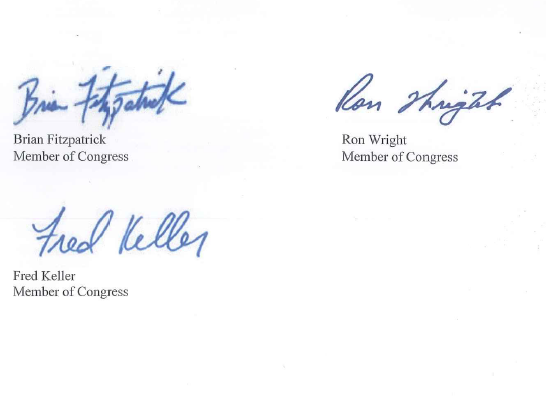 Brian Fitzpatrick
Ron Wright
Brian Fitzpatrick
Member of Congress
Ron Wright
Member of Congress
Fred Keller
Fred Keller
Member of Congress